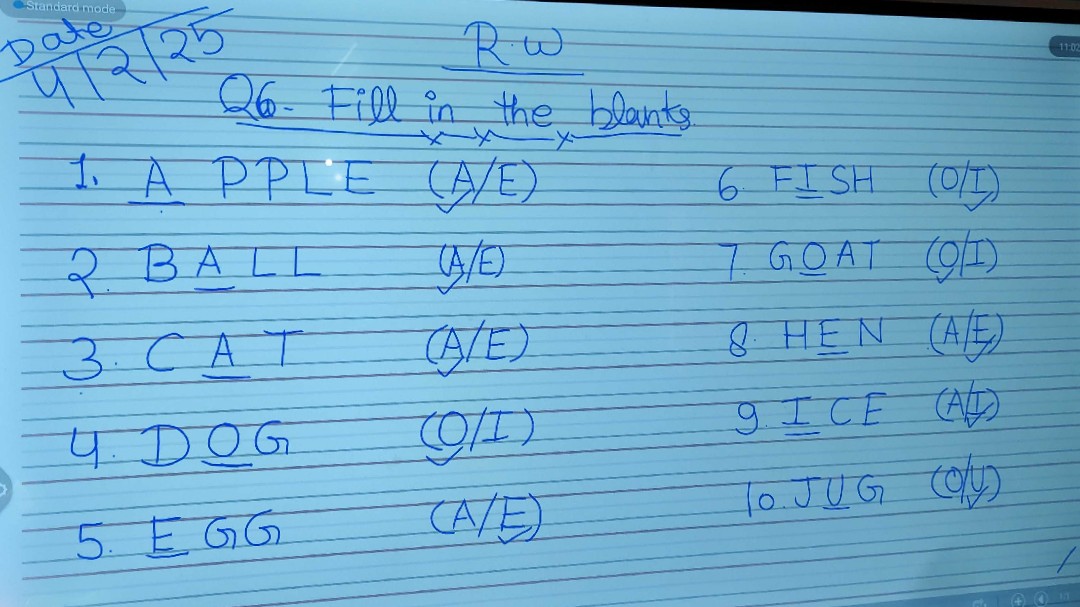 Standard mode
Date
4/2/25
R.W
11:02
Q6- Fill in the blanks
1. A PPLE (A/E)
2. BALL (A/E)
3. CAT (A/E)
4. DOG (O/I)
5. EGG (A/E)
6. FISH (O/I)
7. GOAT (O/I)
8. HEN (A/E)
9. ICE (A/I)
10. JUG (O/U)